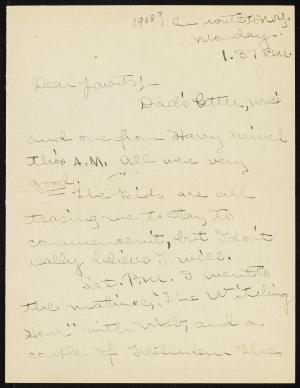 1908? En route to N.Y.
Monday.
1.37 P.M.
Dear Parents;-
Dad's letter,
and one from Harry arrived
this A.M. All were very
good.
The kids are all
teasing me to stay to
commencement, but I don't
really believe I will.
Sat. P.M. I went to
the matinee, "The Witching
Hour" with Web, and a
couple of Freshmen. The